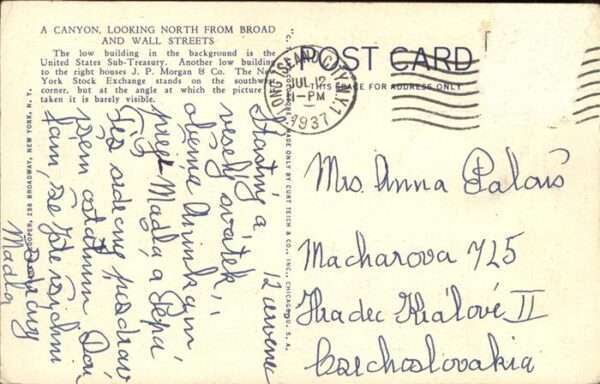 A CANYON, LOOKING NORTH FROM BROAD
AND WALL STREETS
The low building in the background is the
United States Sub-Treasury. Another low building
to the right houses J. P. Morgan & Co. The New
York Stock Exchange stands on the southwest
corner, but at the angle at which the picture is
taken it is barely visible.
POST CARD
THIS SPACE FOR ADDRESS ONLY
LONG ISLAND CITY, N.Y. 1
JUL 12
1-PM
1937
MADE ONLY BY CURT TEICH & CO., INC., CHICAGO, U. S. A.
288 BROADWAY, NEW YORK, N. Y.
12 července
Šťastný a
veselý svátek,
oběma Aninkám
přeje Madla a Pepa
Též srdečný pozdrav
všem ostatním
jsme všichni
Madla
Mrs. Anna Palouš
Macharova 725
Hradec Králové II
Czechoslovakia